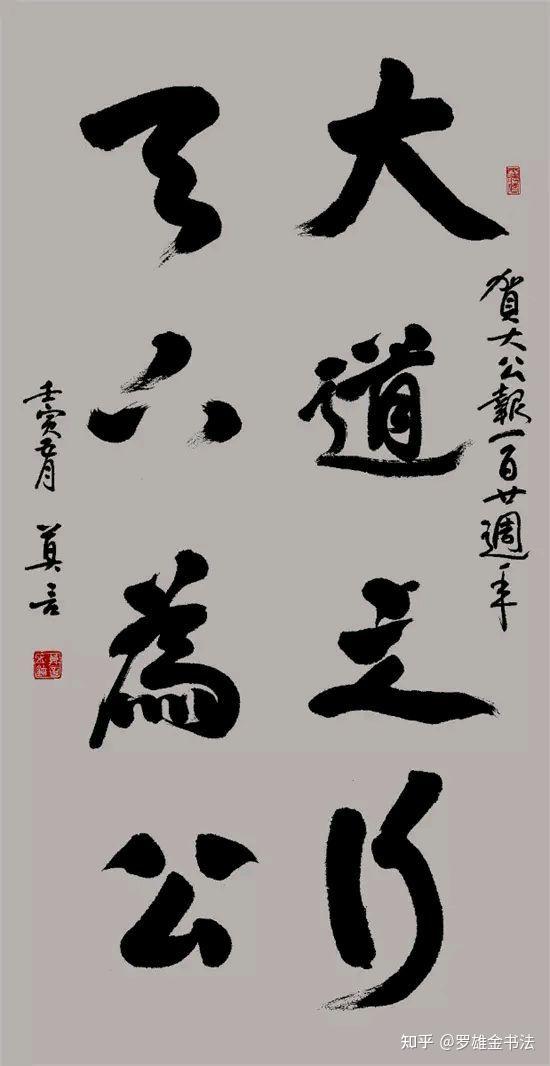 賀大公報一百廿週年
大道之行
天下為公
壬寅五月 莫言
知乎 @罗雄金书法